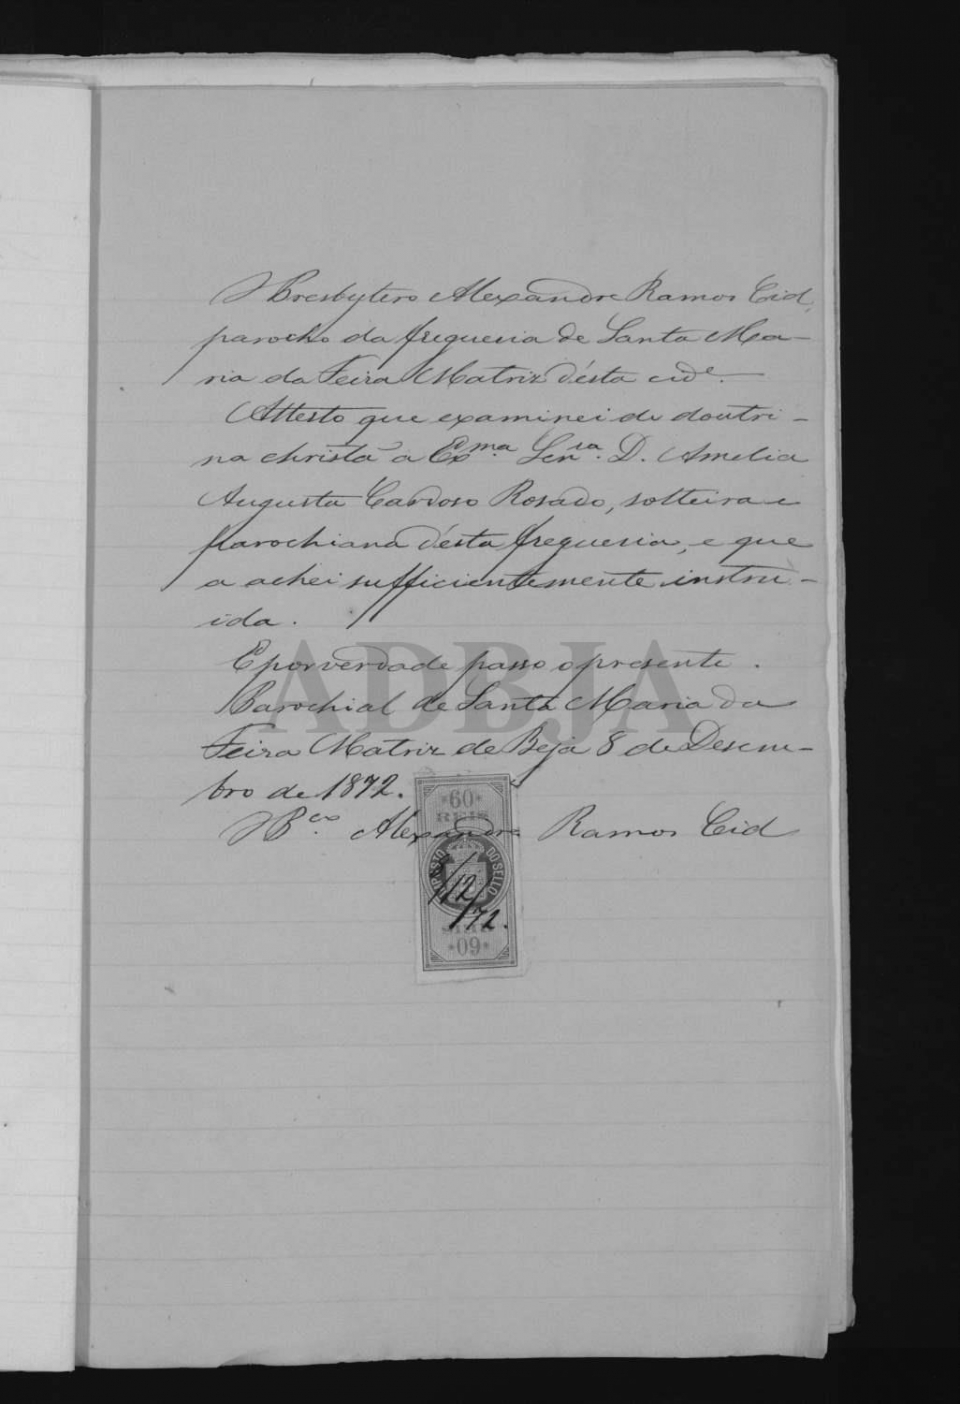 O Presbytero Alexandre Ramos Cid,
parocho da freguesia de Santa Ma-
ria da Feira Matriz d'ésta cide.
Attesto que examinei de doutri-
na christã a Exma. Senra. D. Amelia
Augusta Cardoso Rosado, solteira e
parochiana d'ésta freguesia, e que
a achei sufficientemente instru-
ida.
E por verdade passo o presente.
Parochial de Santa Maria da
Feira Matriz de Beja 8 de Desem-
bro de 1872.
O Pco. Alexandre Ramos Cid
ADBJA
60
REIS
IMPOSTO DO SELLO
8/12/72.
60